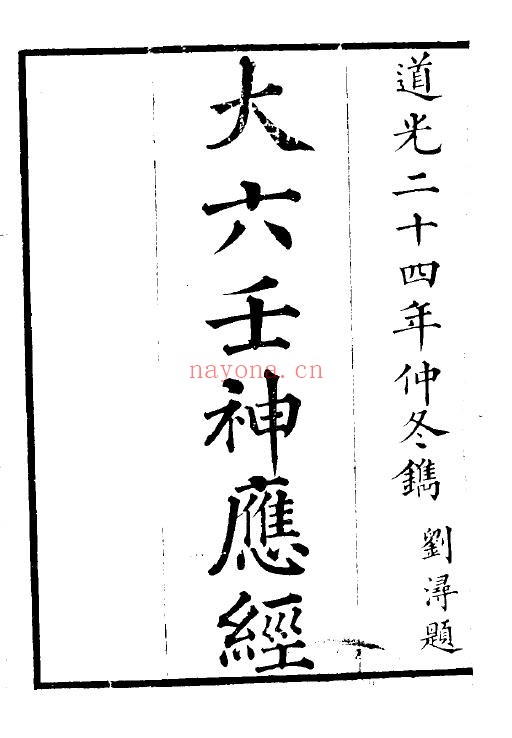 道光二十四年仲冬鐫
劉潯題
大六壬神應經
nayona.cn